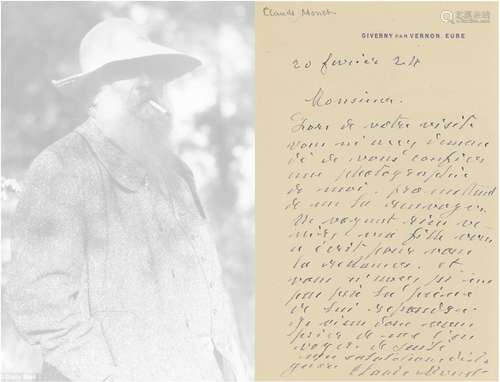 Claude Monet
GIVERNY PAR VERNON. EURE
20 fevrier 24
Monsieur.
Lors de votre visite
vous m'avez deman
dé de vous confier
une photographie
de moi, promettant
de me la renvoyer.
Ne voyant rien ve
nir, ma fille vous
a écrit pour vous
la réclamer. et
vous n'avez pas
pris la peine
de lui répondre.
Je viens donc vous
prier de me l'en
voyer de suite
salutations
Claude Monet